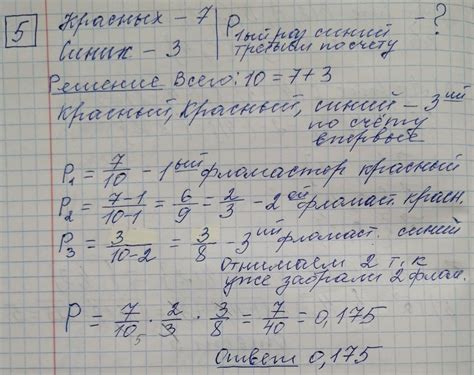 5 Красных – 7 | P 1ый раз синий третьим по счету – ?
Синих – 3
Решение Всего: 10 = 7+3
Красный, Красный, синий – 3ий
по счёту
впервые
P₁ = 7/10 – 1ый фломастер красный
P₂ = 7-1/10-1 = 6/9 = 2/3 – 2ой фломаст. красн.
P₃ = 3/10-2 = 3/8 – 3ий фломаст. синий
отнимаем 2 т.к
уже забрали 2 флом.
P = 7/10 · 2/3 · 3/8 = 7/40 = 0,175
5
Ответ 0,175